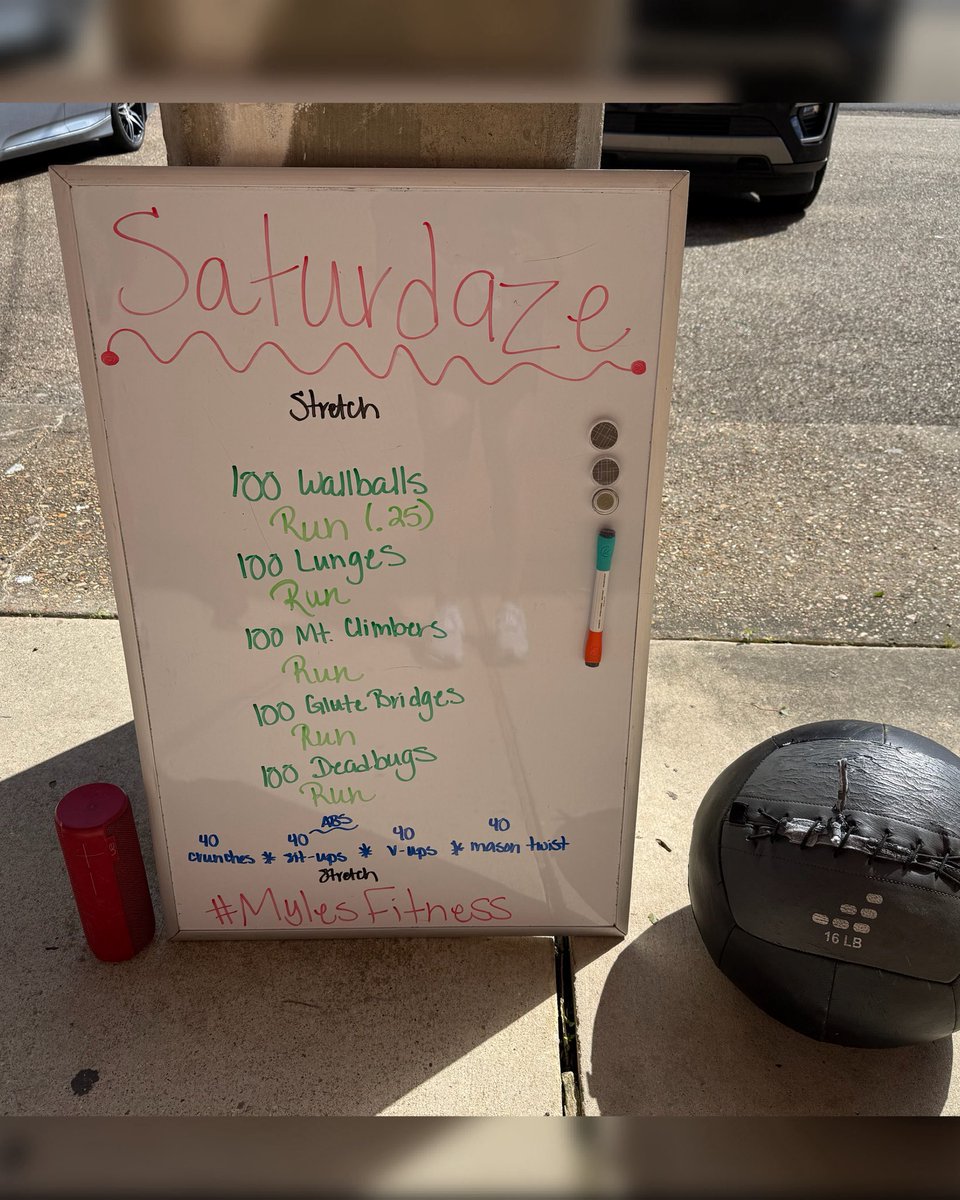 Saturdaze
Stretch
100 Wallballs
Run (.25)
100 Lunges
Run
100 Mt. Climbers
Run
100 Glute Bridges
Run
100 Deadbugs
Run
ABS
40 40 40 40
crunches * sit-ups * v-ups * mason twist
Stretch
#MylesFitness
16 LB